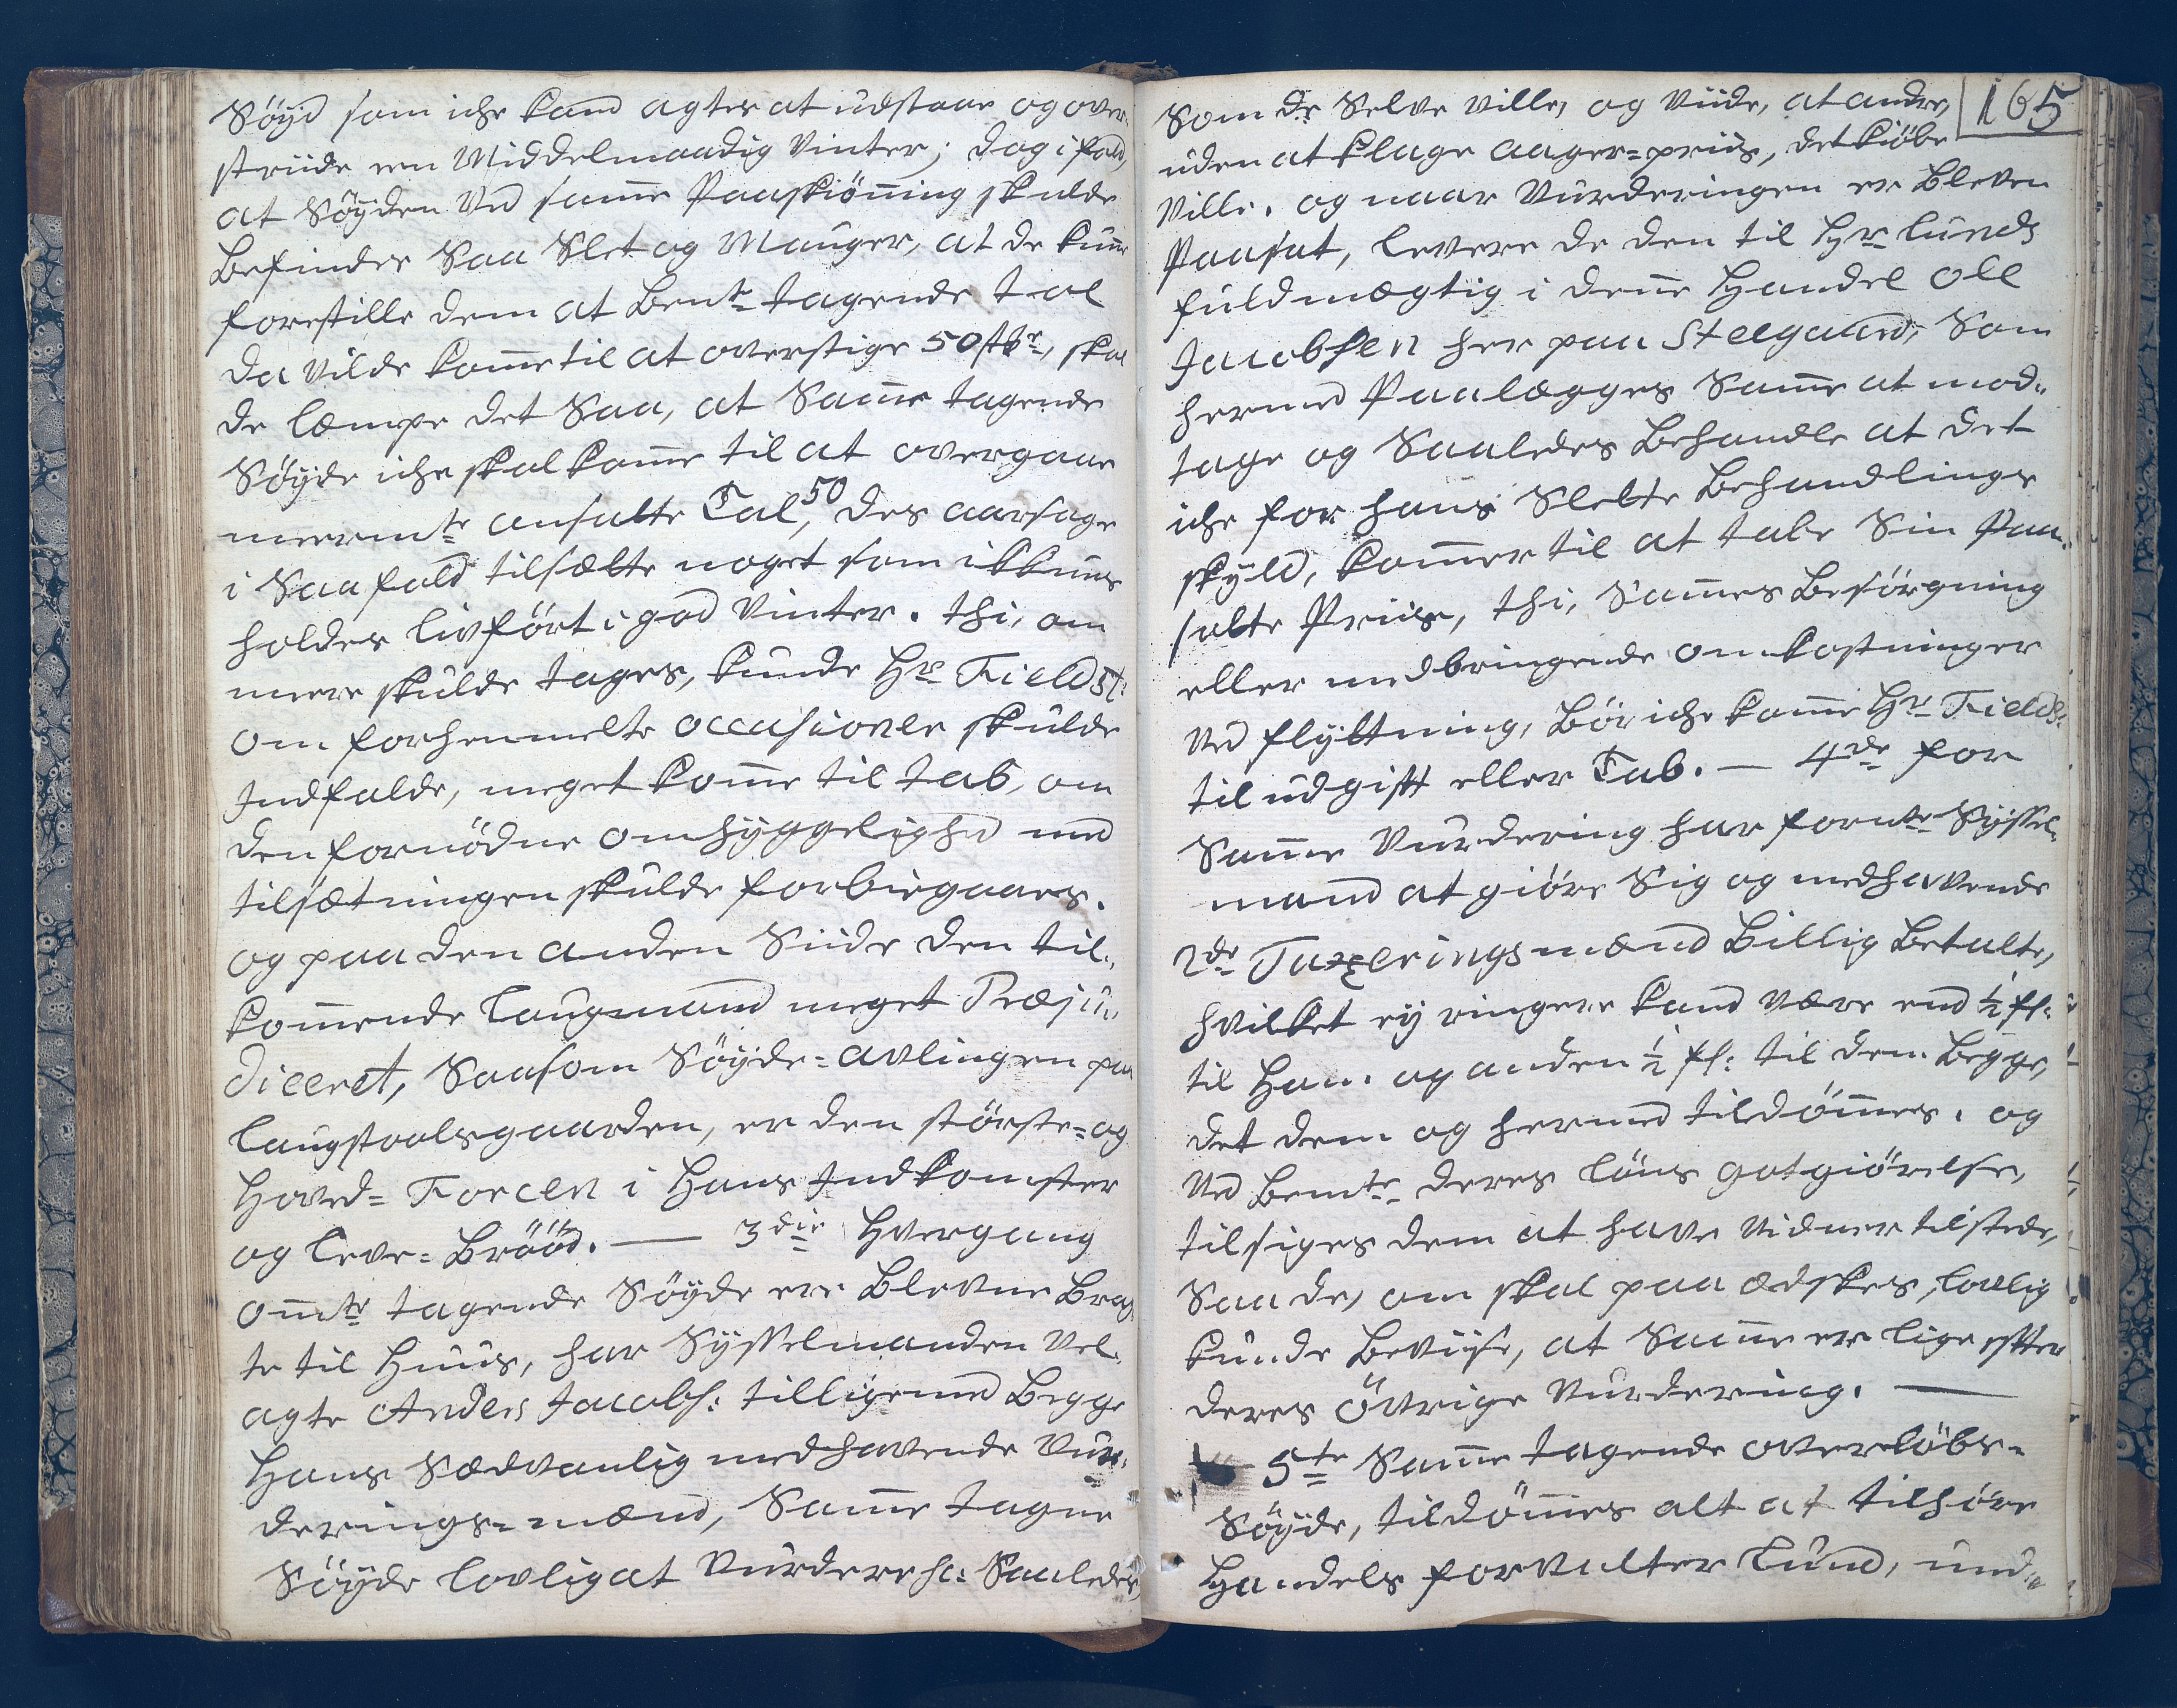 Söyd som iche kand agtes at udstaae og over-
striide een Middelmaadig Vinter; dog i fald,
at Söyden Ved samme Paaskiöning skulde
befindes Saa Slet og Mauger, at de kunde
forestille dem at bemte tagende tal
da vilde komme til at overstige 50 stkr, skal
de læmpe det Saa, at Samme tagende
Söyde iche skal komme til at overgaae
meermte ansatte Tal 50, des aarsage
i Saa fald tilsætte noget som ikkuns
holdes livfört i god Vinter. thi, om
meere skulde tages, kunde Hr Fieldst:
om forhenmelte occasioner skulde
Indfalde, meget komme til tab, om
den fornödne omhyggelighed med
tilsætningen skulde forbiegaaes.
og paa den anden Siide den til-
kommende Laugmand meget Præju-
diceret, Saasom Söyde-avlingen paa
Laugstoelsgaarden, er den störste- og
Hoved-Forcen i Hans Indkomster
og Leve-Brööd. — 3die Hvergang
ommte tagende Söyde ere blevne brag-
te til Huus, har Sysselmanden Vel-
agte Anders Jacobs: tilligemed begge
Hans Sædvanlig medhavende Vur-
derings-mænd, Samme tagne
Söyde lovlig at Vurdere sc: Saaledes
165
Som de Selve ville, og Viide, at andre,
uden at klage aager-priis, det kiöbe
Ville. og naar Vurderingen er bleven
Paasat, levere de den til Hr Lunds
fuldmægtig i denne Handel Ole
Jacobsen her paa Steegaard, Som
hermed Paalægges Samme at mod-
tage og Saaledes behandle at det
iche for hans Slette behandlings
skyld, kommer til at tabe Sin Paa-
satte Priis, thi, Sammes besörgning
eller medbringende omkostninger
Ved flyttning, bör iche komme Hr Fields:
til udgift eller Tab. — 4de for
Samme Vurdering har fornte Syssel-
mand at giöre Sig og medhavende
2de Taxeringsmænd billig betalte,
hvilket ey ringere kand være end ½ fl:
til Ham. og anden ½ fl: til dem begge,
det dem og hermed tildömmes. og
Ved bemte deres Löns gotgiörelse,
tilsiges dem at have Vidner tilstede,
Saa de, om skal paa ædskes, lovlig
kunde beviise, at Samme er lige efter
deres övrige Vurdering. —
5te Samme tagende overlöbs-
Söyde, tildömmes alt at tilhöre
Handels forvalter Lund, und-